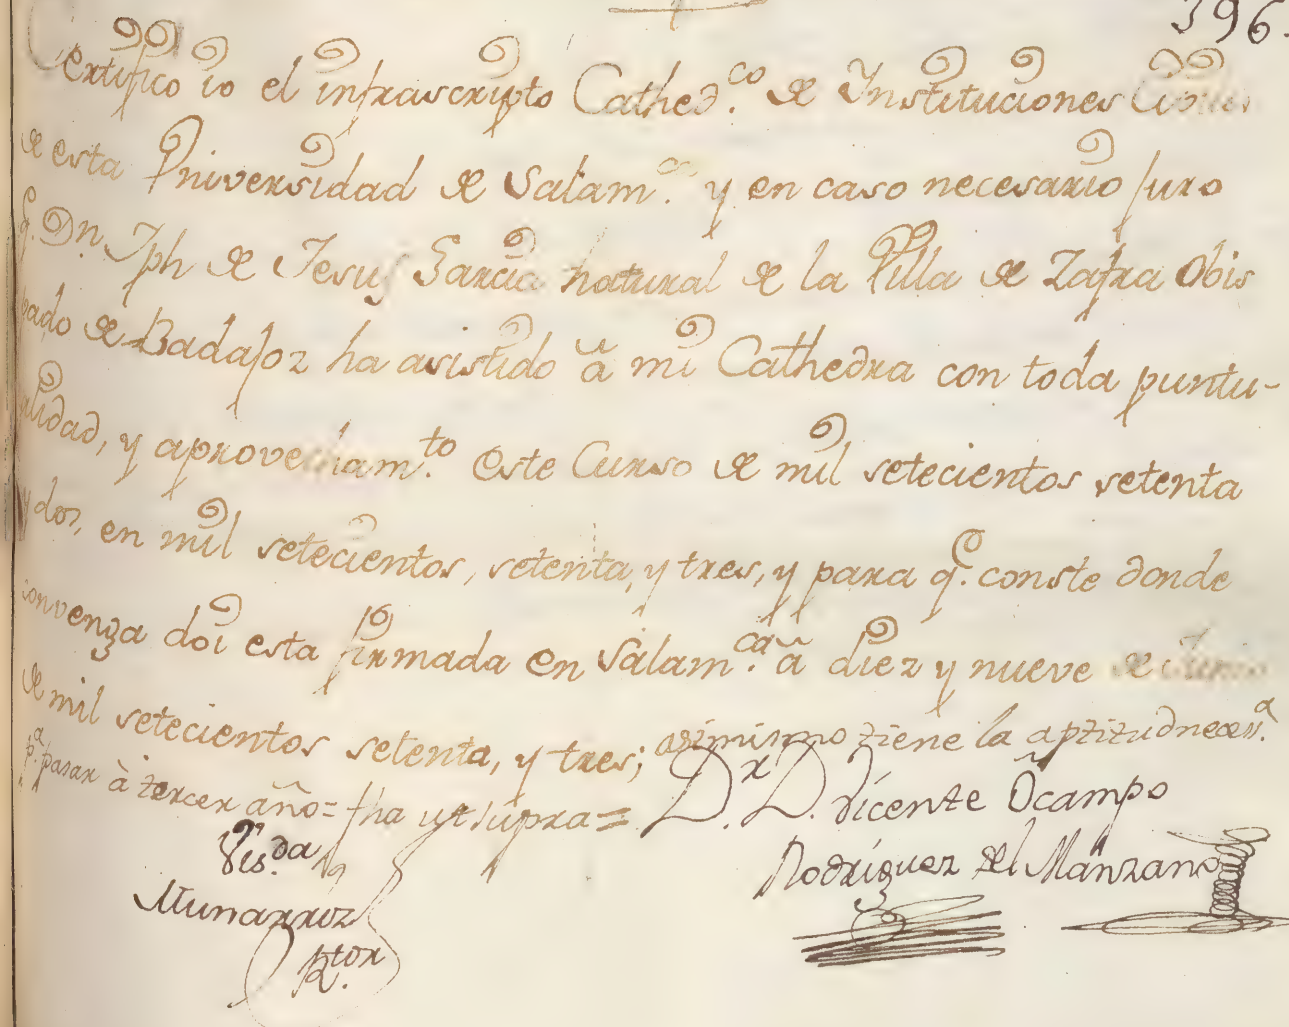 396.
Certifico io el infrascripto Cathed.co de Instituciones Civiles
de esta Vniversidad de Salam.ca y en caso necesario juro
q.e Dn. Jph de Jesus Garcia natural de la Villa de Zafra Obis
pado de Badajoz ha asistido à mi Cathedra con toda puntu-
alidad, y aprovecham.to este Curso de mil setecientos setenta
y dos, en mil setecientos, setenta, y tres, y para q.e conste donde
convenga doi esta firmada en Salam.ca à diez y nueve de Junio
de mil setecientos setenta, y tres; asimismo tiene la aptitud neces.a
p.a pasar à tercer año = fha ut supra =
Dr. D. Vicente Ocampo
Rodriguez del Manzano
Vis.da
Munarriz
R.tor